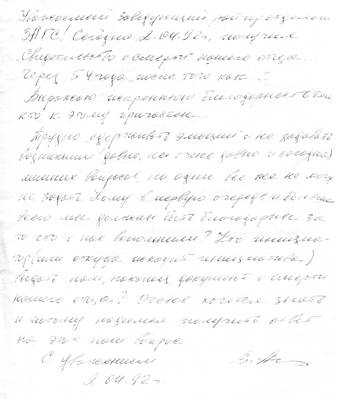 Уважаемый заведующий райгор отделом
ЗАГС! Сегодня 2.04.92г. получил
Свидетельство о смерти нашего отца...
Через 54 года, после того как...
Выражаю искреннюю благодарность всем
кто к этому причастен...
Трудно сдерживать эмоции и не задавать
возникших (давно, очень давно и сегодня)
лишних вопросов, но один все же не могу
не задать. Кому в первую очередь и больше
всего мы должны быть благодарны за
то что о нас вспомнили? Кто инициа-
тор (или откуда исходит инициатива)
выдать нам, наконец, документ о смерти
нашего отца? Очень хочется знать
и потому надеемся получить ответ
на этот наш вопрос
С уважением
2.04.92г.